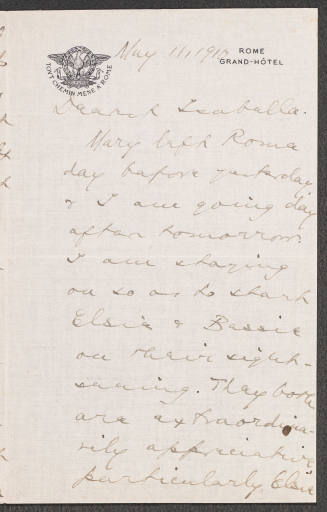 TOUT CHEMIN MENE A ROME
ROME
GRAND-HÔTEL
May 11, 191
Dearest Isabella.
Mary left Rome
day before yesterday
& I am going day
after tomorrow.
I am staying
on so as to start
Elsie & Bessie
on their sight-
seeing. They both
are extraordina-
rily appreciative
particularly Elsie